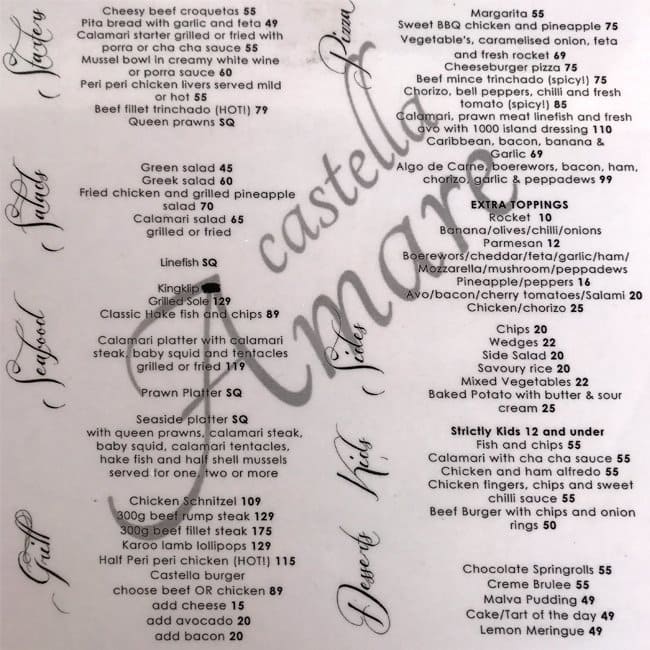 Starters
Cheesy beef croquetas 55
Pita bread with garlic and feta 49
Calamari starter grilled or fried with
porra or cha cha sauce 55
Mussel bowl in creamy white wine
or porra sauce 60
Peri peri chicken livers served mild
or hot 55
Beef fillet trinchado (HOT!) 79
Queen prawns SQ
Salads
Green salad 45
Greek salad 60
Fried chicken and grilled pineapple
salad 70
Calamari salad 65
grilled or fried
Seafood
Linefish SQ
Kingklip
Grilled Sole 129
Classic Hake fish and chips 89
Calamari platter with calamari
steak, baby squid and tentacles
grilled or fried 119
Prawn Platter SQ
Seaside platter SQ
with queen prawns, calamari steak,
baby squid, calamari tentacles,
hake fish and half shell mussels
served for one, two or more
Grill
Chicken Schnitzel 109
300g beef rump steak 129
300g beef fillet steak 175
Karoo lamb lollipops 129
Half Peri peri chicken (HOT!) 115
Castella burger
choose beef OR chicken 89
add cheese 15
add avocado 20
add bacon 20
Pizza
Margarita 55
Sweet BBQ chicken and pineapple 75
Vegetable's, caramelised onion, feta
and fresh rocket 69
Cheeseburger pizza 75
Beef mince trinchado (spicy!) 75
Chorizo, bell peppers, chilli and fresh
tomato (spicy!) 85
Calamari, prawn meat linefish and fresh
avo with 1000 island dressing 110
Caribbean, bacon, banana &
Garlic 69
Algo de Carne, boerewors, bacon, ham,
chorizo, garlic & peppadews 99
EXTRA TOPPINGS
Rocket 10
Banana/olives/chilli/onions
Parmesan 12
Boerewors/cheddar/feta/garlic/ham/
Mozzarella/mushroom/peppadews
Pineapple/peppers 16
Avo/bacon/cherry tomatoes/Salami 20
Chicken/chorizo 25
Sides
Chips 20
Wedges 22
Side Salad 20
Savoury rice 20
Mixed Vegetables 22
Baked Potato with butter & sour
cream 25
Kids
Strictly Kids 12 and under
Fish and chips 55
Calamari with cha cha sauce 55
Chicken and ham alfredo 55
Chicken fingers, chips and sweet
chilli sauce 55
Beef Burger with chips and onion
rings 50
Desserts
Chocolate Springrolls 55
Creme Brulee 55
Malva Pudding 49
Cake/Tart of the day 49
Lemon Meringue 49
castella
Amare